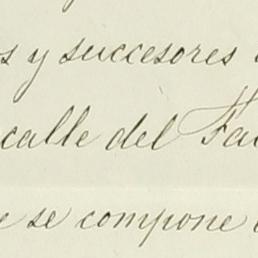 y succesores
calle del
se compone